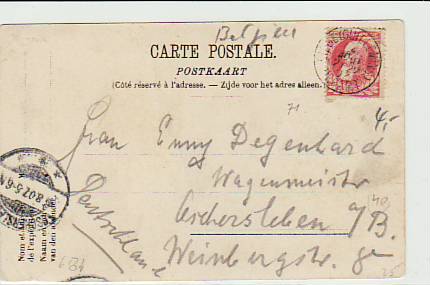 Belgien
CARTE POSTALE.
POSTKAART
(Côté réservé à l'adresse. — Zijde voor het adres alleen.)
71
4,-
Frau Emmy Degenhard
Wagenmeister
Aschersleben a/B.
Weinbergstr.
Deutschland
8.07.5-6N
Nom et
de l'exp
Naam en
van den